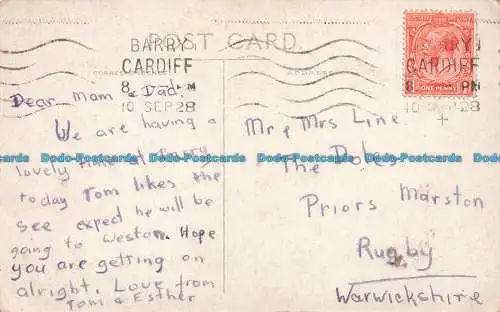 POST CARD.
BARRY
CARDIFF
8 PM
10 SEP 28
ONE PENNY
Dear Mam & Dad
We are having a
lovely time at Barry
today Tom likes the
see expect he will be
going to Weston. Hope
you are getting on
alright. Love from
Tom & Esther
Mr & Mrs Line
The
Priors Marston
Rugby
Warwickshire
CARDIFF
8 PM
28
Dodo-Postcards Dodo-Postcards Dodo-Postcards Dodo-Postcards